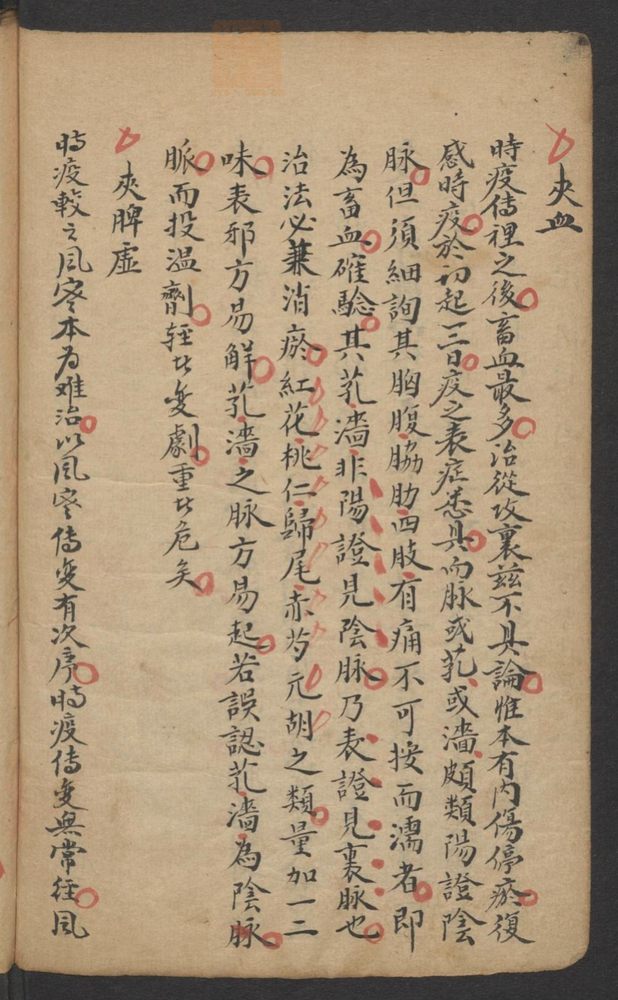 夾血
時疫傳裡之後畜血最多治從攻裏兹不具論惟本有內傷停瘀復
感時疫於初起一二日疫之表症悉具而脉或芤或濇頗類陽證陰
脉但須細詢其胸腹脇肋四肢有痛不可按而濡者即
為畜血確驗其芤濇非陽證見陰脉乃表證見裏脉也
治法必兼消瘀紅花桃仁歸尾赤芍元胡之類量加一二
味表邪方易解芤濇之脉方易起若誤認芤濇為陰脉
脈而投温劑輕㘴变劇重㘴危矣
夾脾虚
時疫較之风寒本为难治以风寒传变有次序時疫传变無常径风